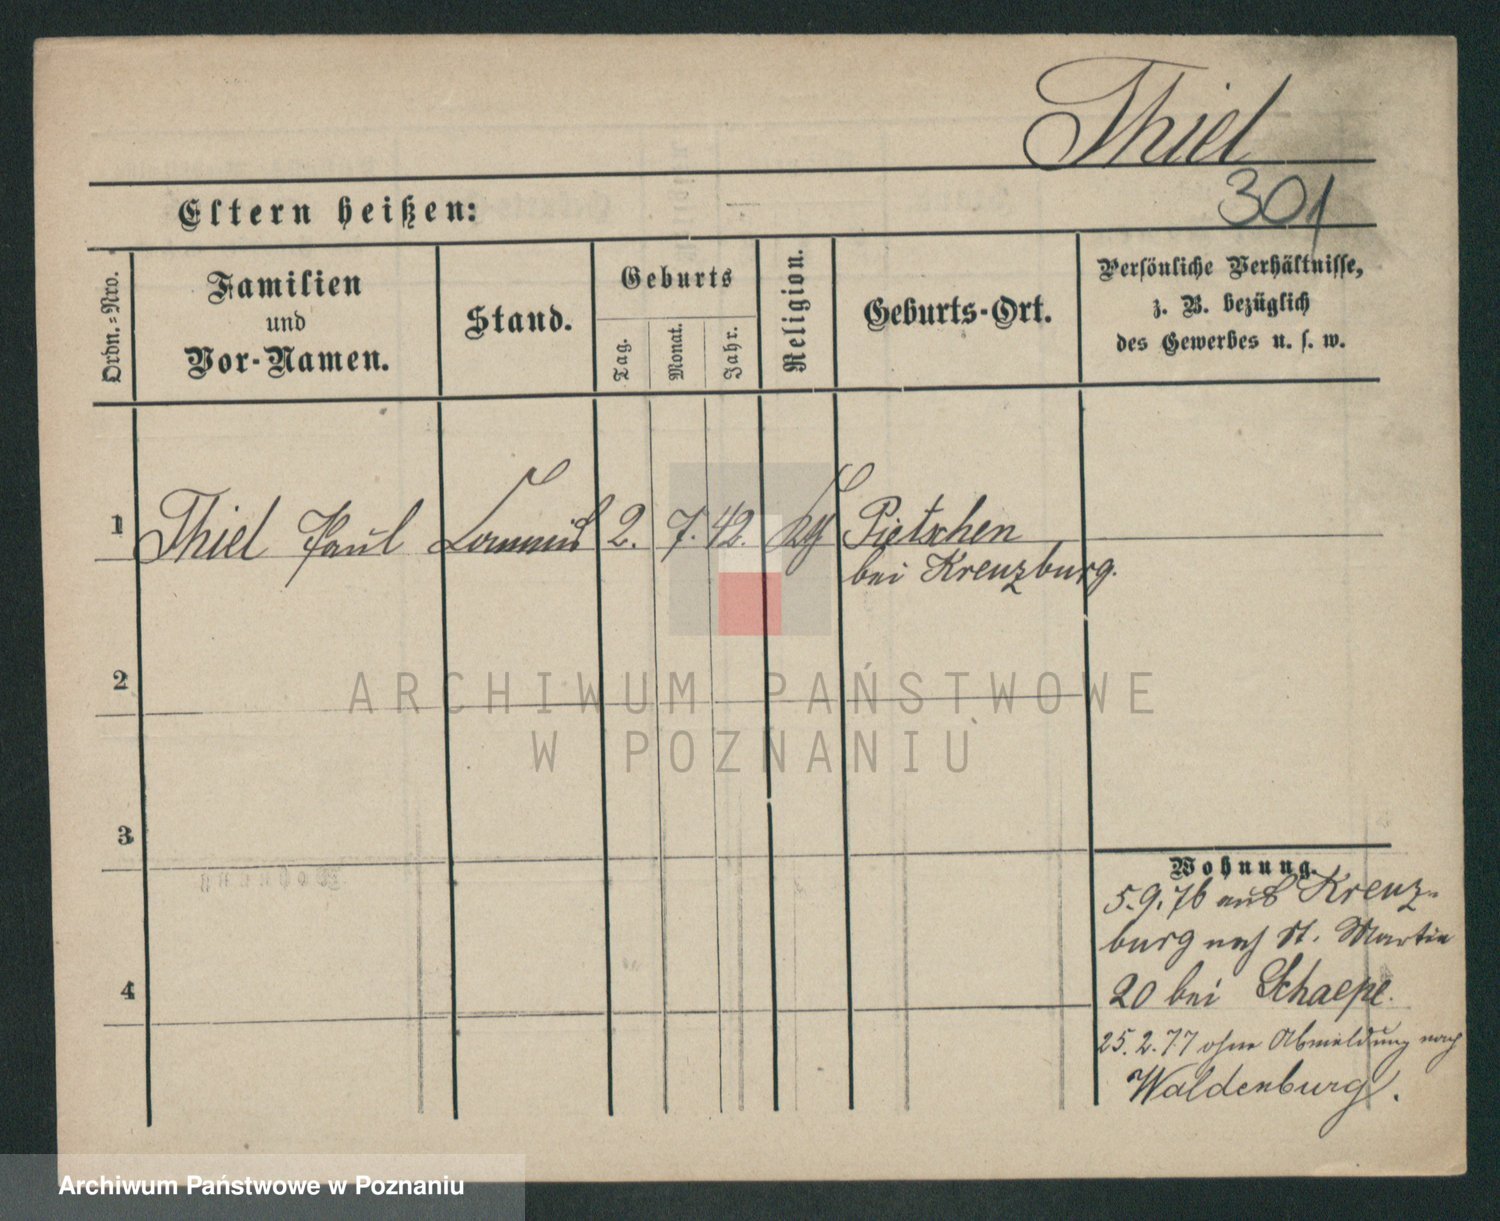 Thiel
301
Eltern heißen:
Ordn.=Nro.
Familien
und
Vor-Namen.
Stand.
Geburts
Tag.
Monat.
Jahr.
Religion.
Geburts-Ort.
Persönliche Verhältnisse,
z. B. bezüglich
des Gewerbes u. s. w.
1 Thiel Paul Commis 2. 7. 42. Pietschen
bei Kreuzburg.
2
3
4
Wohnung.
5.9.76 aus Kreuz-
burg nach St. Martin
20 bei Schaepe.
25.2.77 ohne Abmeldung nach
Waldenburg.
ARCHIWUM PAŃSTWOWE
W POZNANIU
Archiwum Państwowe w Poznaniu